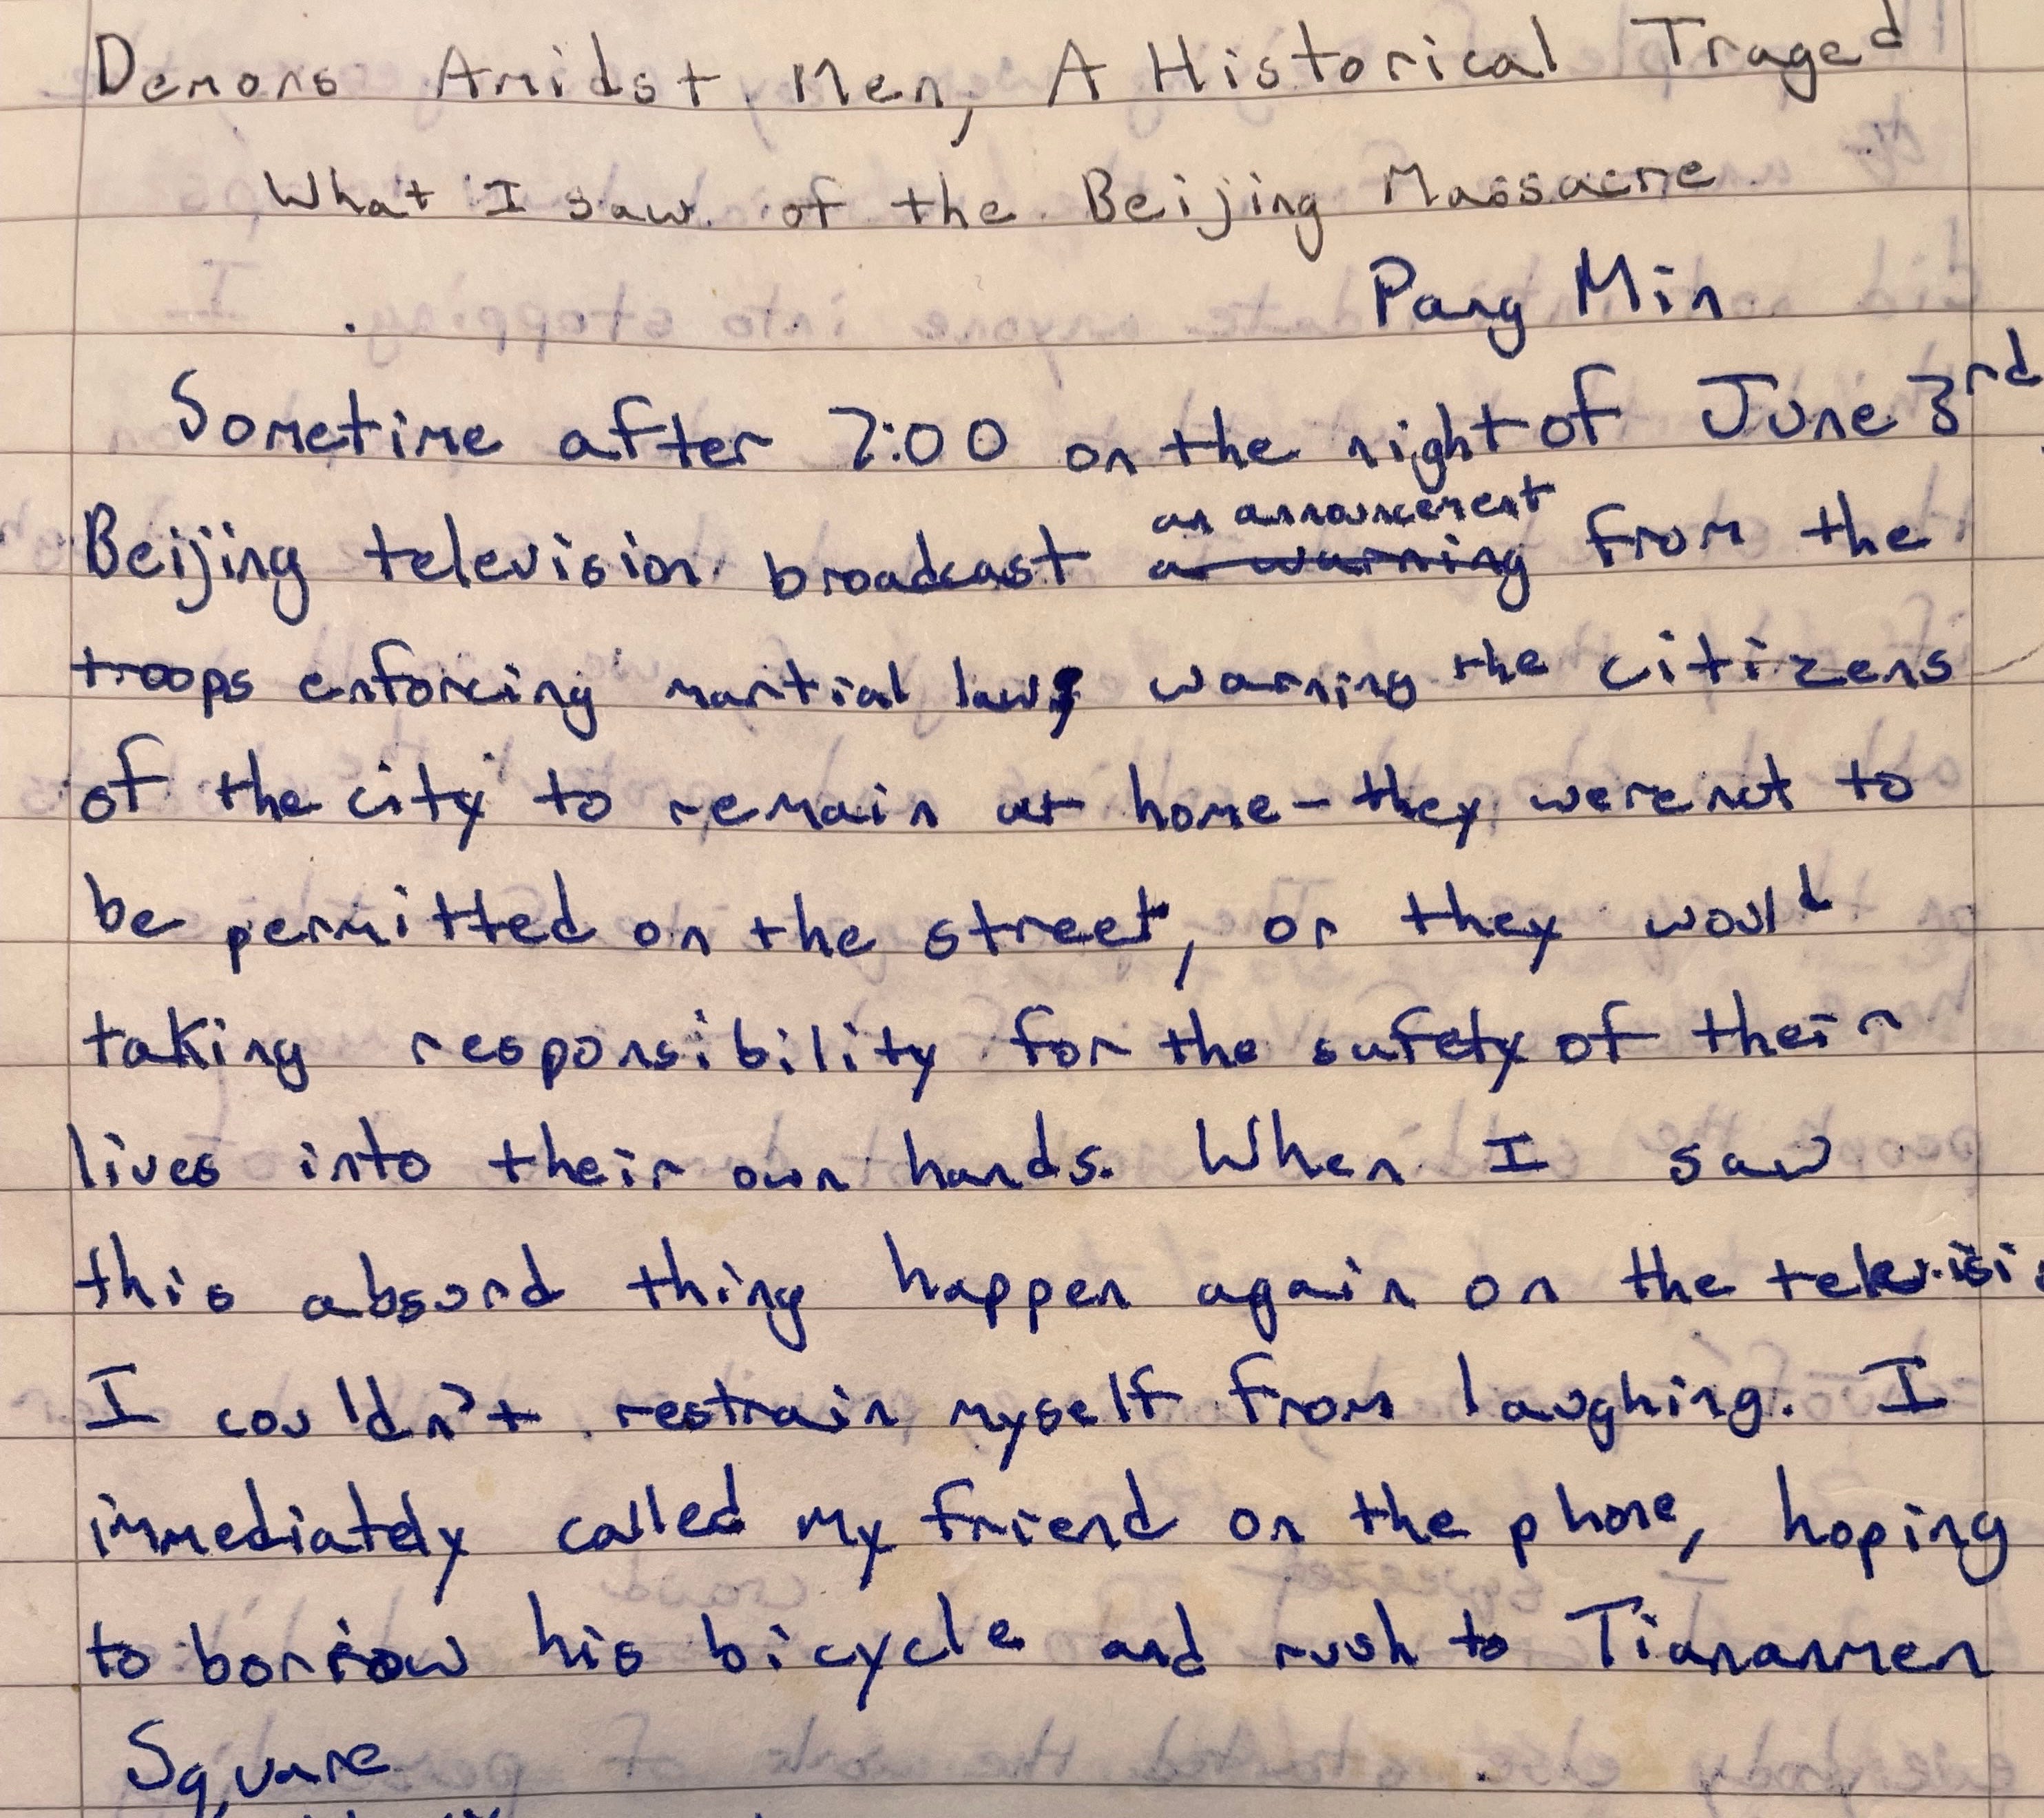 Demons Amidst Men, A Historical Traged
What I saw of the Beijing Massacre
Pang Min
Sometime after 7:00 on the night of June 3rd,
an announcement
Beijing television broadcast a warning from the
troops enforcing martial law, warning the citizens
of the city to remain at home - they were not to
be permitted on the street, or they would
taking responsibility for the safety of their
lives into their own hands. When I saw
this absurd thing happen again on the televisi
I couldn't restrain myself from laughing. I
immediately called my friend on the phone, hoping
to borrow his bicycle and rush to Tiananmen
Square